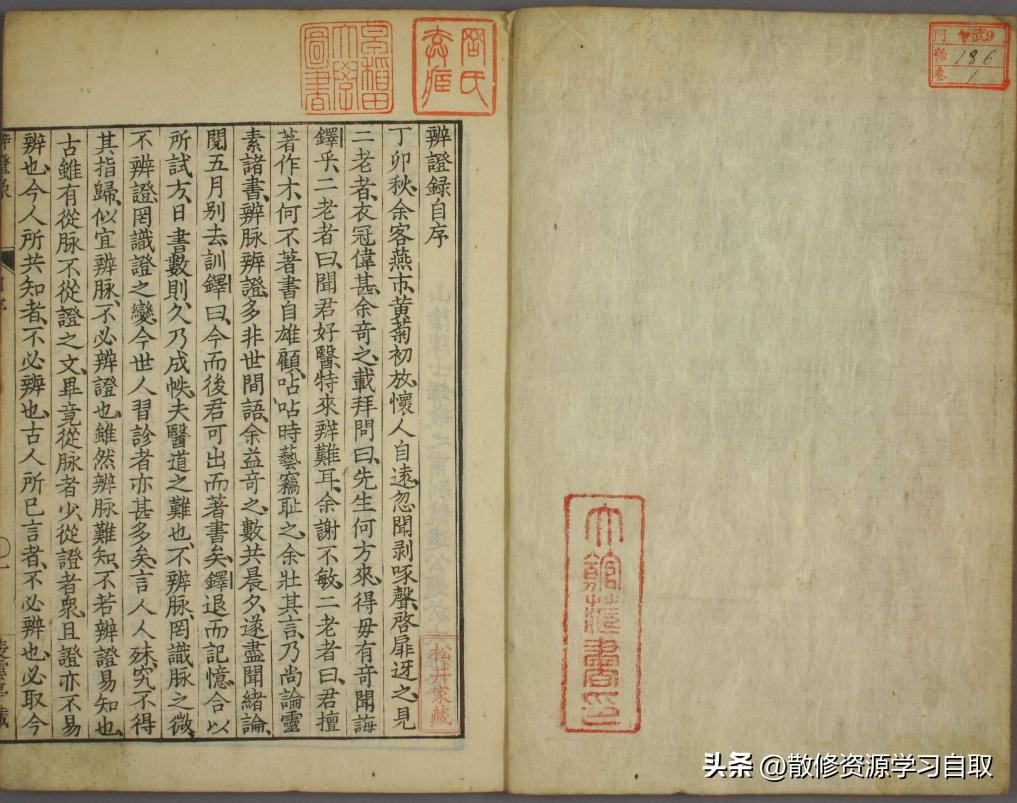 辨證録自序
丁卯秋余客燕市黄菊初放懷人自遠忽聞剥啄聲啓扉迓之見
二老者衣冠偉甚余竒之載拜問曰先生何方來得毋有竒聞誨
鐸乎二老者曰聞君好醫特來辨難耳余謝不敏二老者曰君擅
著作才何不著書自雄顧呫呫時藝竊耻之余壯其言乃尚論靈
素諸書辨脉辨證多非世間語余益竒之數共晨夕遂盡聞緒論
閱五月别去訓鐸曰今而後君可出而著書矣鐸退而記憶合以
所試方日書數則久乃成帙夫醫道之難也不辨脉罔識脉之微
不辨證罔識證之變今世人習診者亦甚多矣言人人殊究不得
其指歸似宜辨脉不必辨證也雖然辨脉難知不若辨證易知也
古雖有從脉不從證之文畢竟從脉者少從證者衆且證亦不易
辨也今人所共知者不必辨也古人所已言者不必辨也必取今
松井家藏
武9
186
1
頭条 @散修资源学习自取